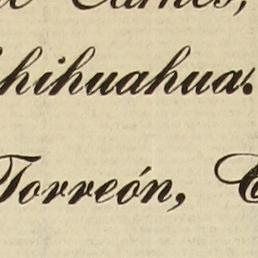 de Carnes,
Chihuahua.
Torreón, C